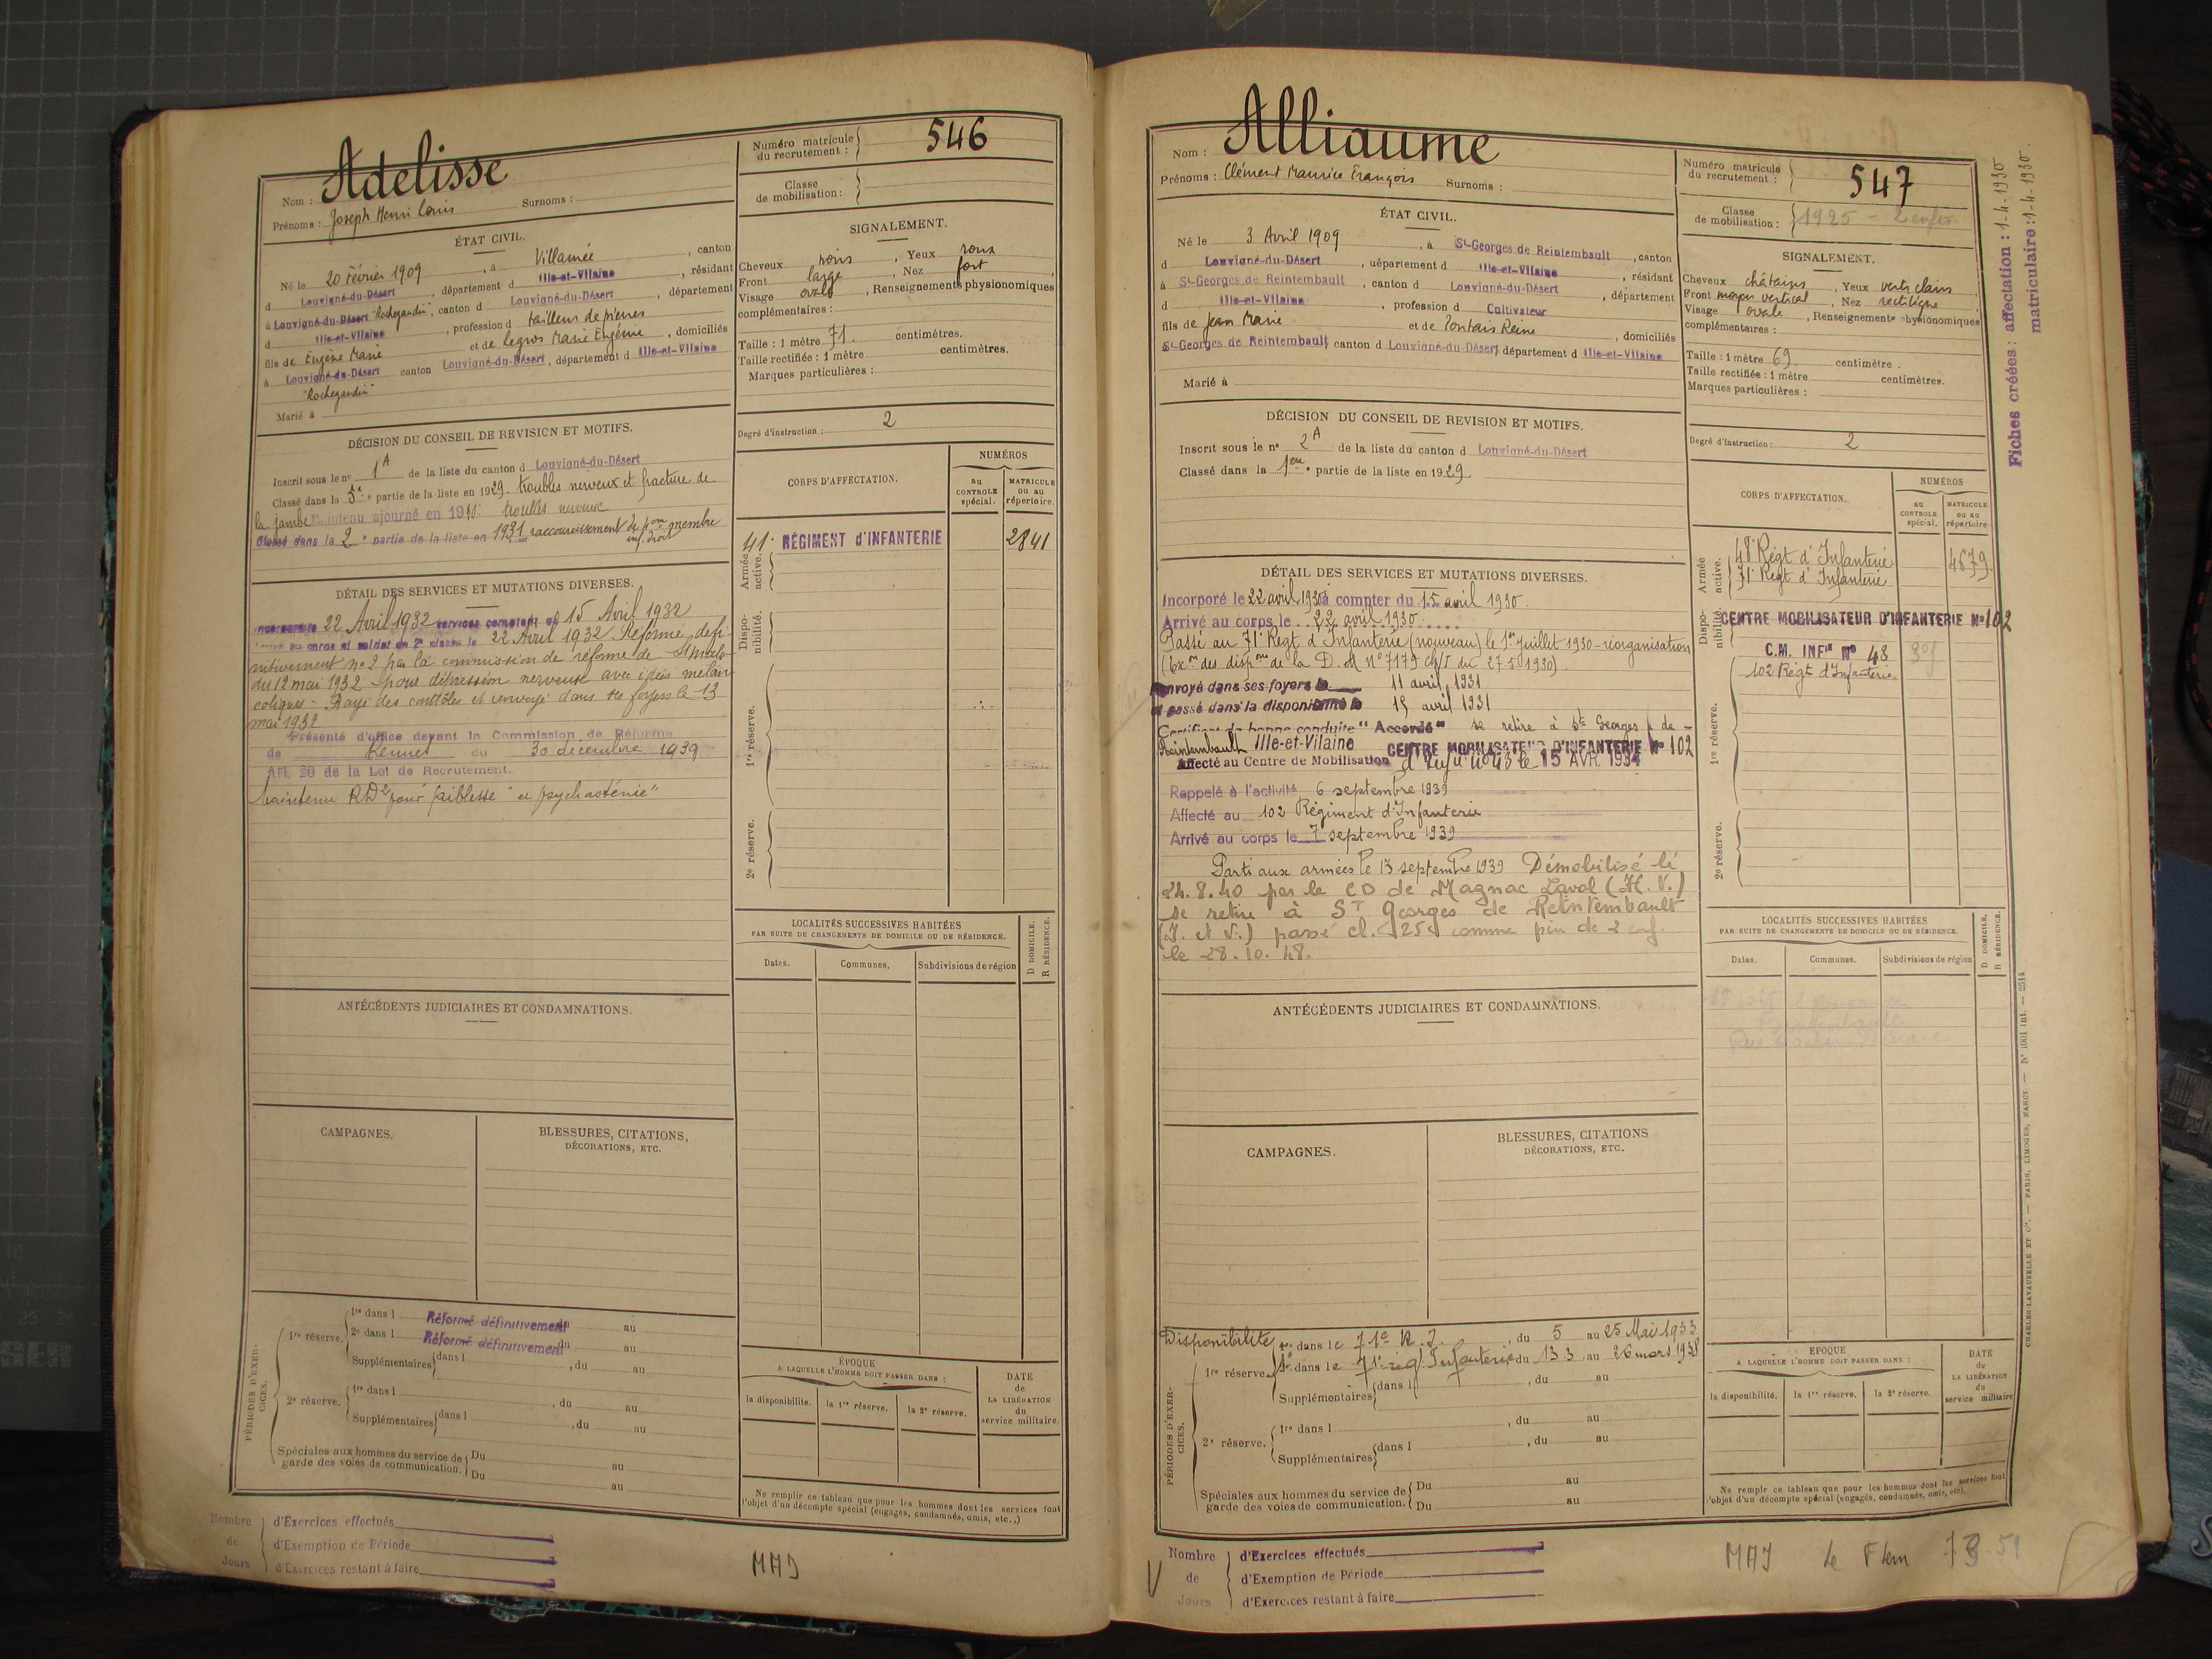 Adelisse
Nom :
Prénoms : Joseph Henri Louis Surnoms :
Numéro matricule du recrutement : 546
Classe de mobilisation :
ÉTAT CIVIL.
Né le 20 Février 1909, à Villamée, canton
d Louvigné-du-Désert, département d Ille-et-Vilaine, résidant
à Louvigné-du-Désert "Rochegandin", canton d Louvigné-du-Désert, département
d Ille-et-Vilaine, profession d tailleur de pierres
fils de Eugène Marie et de Legros Marie Eugénie, domiciliés
à Louvigné-du-Désert canton Louvigné-du-Désert, département d Ille-et-Vilaine
"Rochegandin"
Marié à
SIGNALEMENT.
Cheveux roux, Yeux roux
Front large, Nez fort
Visage ovale, Renseignements physionomiques
complémentaires :
Taille : 1 mètre 71. centimètres.
Taille rectifiée : 1 mètre centimètres.
Marques particulières :
Degré d'instruction : 2
DÉCISION DU CONSEIL DE REVISION ET MOTIFS.
Inscrit sous le no 1A de la liste du canton d Louvigné-du-Désert
Classé dans la 5e partie de la liste en 1929. troubles nerveux et fracture de
la jambe Maintenu ajourné en 1930: troubles nerveux
Classé dans la 2e partie de la liste en 1931 raccourcissement de membre
inf. droit
CORPS D'AFFECTATION.
NUMÉROS
au CONTROLE spécial.
MATRICULE ou au répertoire.
Armée active.
41e RÉGIMENT d'INFANTERIE 2841
Disponibilité.
1re réserve.
2e réserve.
DÉTAIL DES SERVICES ET MUTATIONS DIVERSES.
Incorporé le 22 Avril 1932 services comptent du 15 Avril 1932
Arrivé au corps et soldat de 2e classe le 22 Avril 1932 Réformé défi-
nitivement no 2 par la commission de réforme de St malo
du 12 mai 1932 pour dépression nerveuse avec idées mélan-
coliques - Rayé des contrôles et renvoyé dans ses foyers le 13
mai 1932
Présenté d'office devant la Commission de Réforme
de Rennes du 30 décembre 1939
Art. 20 de la Loi de Recrutement.
Maintenu RD2 pour faiblesse "et psychasténie"
LOCALITÉS SUCCESSIVES HABITÉES
PAR SUITE DE CHANGEMENTS DE DOMICILE OU DE RÉSIDENCE.
D DOMICILE.
R RÉSIDENCE.
Dates. Communes. Subdivisions de région
ANTÉCÉDENTS JUDICIAIRES ET CONDAMNATIONS.
CAMPAGNES.
BLESSURES, CITATIONS,
DÉCORATIONS, ETC.
PÉRIODES D'EXERCICES.
1re réserve. 1re dans l Réformé définitivement du au
2e dans l Réformé définitivement du au
Supplémentaires dans l , du au
2e réserve. 1re dans l , du au
Supplémentaires dans l , du au
Spéciales aux hommes du service de garde des voies de communication. Du au
Du au
ÉPOQUE
A LAQUELLE L'HOMME DOIT PASSER DANS :
la disponibilité. la 1re réserve. la 2e réserve.
DATE de LA LIBÉRATION du service militaire.
Ne remplir ce tableau que pour les hommes dont les services font
l'objet d'un décompte spécial (engagés, condamnés, omis, etc.,)
Nombre de Jours
d'Exercices effectués
d'Exemption de Période
d'Exercices restant à faire
MAJ
Alliaume
Nom :
Prénoms : Clément Maurice François Surnoms :
Numéro matricule du recrutement : 547
Classe de mobilisation : 1925 - 2 enfts
ÉTAT CIVIL.
Né le 3 Avril 1909, à St-Georges de Reintembault, canton
d Louvigné-du-Désert, département d Ille-et-Vilaine, résidant
à St-Georges de Reintembault, canton d Louvigné-du-Désert, département
d Ille-et-Vilaine, profession d Cultivateur
fils de Jean Marie et de Pontais Reine, domiciliés
St-Georges de Reintembault canton d Louvigné-du-Désert département d Ille-et-Vilaine
Marié à
SIGNALEMENT.
Cheveux châtains, Yeux verts clairs
Front moyen vertical, Nez rectiligne
Visage ovale, Renseignements physionomiques
complémentaires :
Taille : 1 mètre 69 centimètre.
Taille rectifiée : 1 mètre centimètres.
Marques particulières :
Degré d'instruction : 2
Fiches créées : affectation : 1-4-1930
matriculaire : 1-4-1930.
DÉCISION DU CONSEIL DE REVISION ET MOTIFS.
Inscrit sous le no 2A de la liste du canton d Louvigné-du-Désert
Classé dans la 1ere partie de la liste en 1929.
CORPS D'AFFECTATION.
NUMÉROS
au CONTROLE spécial.
MATRICULE ou au répertoire
Armée active.
48e Régt d'Infanterie 4679
71e Régt d'Infanterie
Disponibilité.
CENTRE MOBILISATEUR D'INFANTERIE No 102
C.M. INFie No 43
102 Régt d'Infanterie
1re réserve.
2e réserve.
DÉTAIL DES SERVICES ET MUTATIONS DIVERSES.
Incorporé le 22 avril 1930 à compter du 15 avril 1930.
Arrivé au corps le 22 avril 1930
Passé au 71e Régt d'Infanterie (nouveau) le 1er juillet 1930 - réorganisation
(Exon des dispons de la D. M No 7179 du 27.5.1930).
Renvoyé dans ses foyers le 11 avril 1931
et passé dans la disponibilité le 15 avril 1931
Certificat de bonne conduite "Accordé" se retire à St Georges de -
Reintembault Ille-et-Vilaine CENTRE MOBILISATEUR D'INFANTERIE No 102
Affecté au Centre de Mobilisation d'Infie no 43 le 15 AVR. 1934
Rappelé à l'activité 6 septembre 1939
Affecté au 102 Régiment d'Infanterie
Arrivé au corps le 7 septembre 1939
Parti aux armées le 13 septembre 1939 Démobilisé le
24.8.40 par le CD de Magnac Laval (H. V.)
se retire à ST Georges de Reintembault
(I. et V.) passé cl. 25 comme père de 2 enf.
le 28.10.48.
LOCALITÉS SUCCESSIVES HABITÉES
PAR SUITE DE CHANGEMENTS DE DOMICILE OU DE RÉSIDENCE.
D DOMICILE.
R RÉSIDENCE.
Dates. Communes. Subdivisions de région
ANTÉCÉDENTS JUDICIAIRES ET CONDAMNATIONS.
CAMPAGNES.
BLESSURES, CITATIONS
DÉCORATIONS, ETC.
PÉRIODES D'EXERCICES.
Disponibilité 1re dans le 71e R. I. , du 5 au 25 Mai 1933
1re réserve. 1e dans le 71e rég. Infanterie du 13.3 au 26 mars 1938
Supplémentaires dans l , du au
2e réserve. 1re dans l , du au
Supplémentaires dans l , du au
Spéciales aux hommes du service de garde des voies de communication. Du au
Du au
ÉPOQUE
A LAQUELLE L'HOMME DOIT PASSER DANS :
la disponibilité. la 1re réserve. la 2e réserve.
DATE de LA LIBÉRATION du service militaire
Ne remplir ce tableau que pour les hommes dont les services font
l'objet d'un décompte spécial (engagés, condamnés, omis, etc.).
CHARLES-LAVAUZELLE ET Cie. — PARIS, LIMOGES, NANCY. — No 1001 int. — 2514
Nombre de Jours
d'Exercices effectués
d'Exemption de Période
d'Exercices restant à faire
MAJ Le Flem